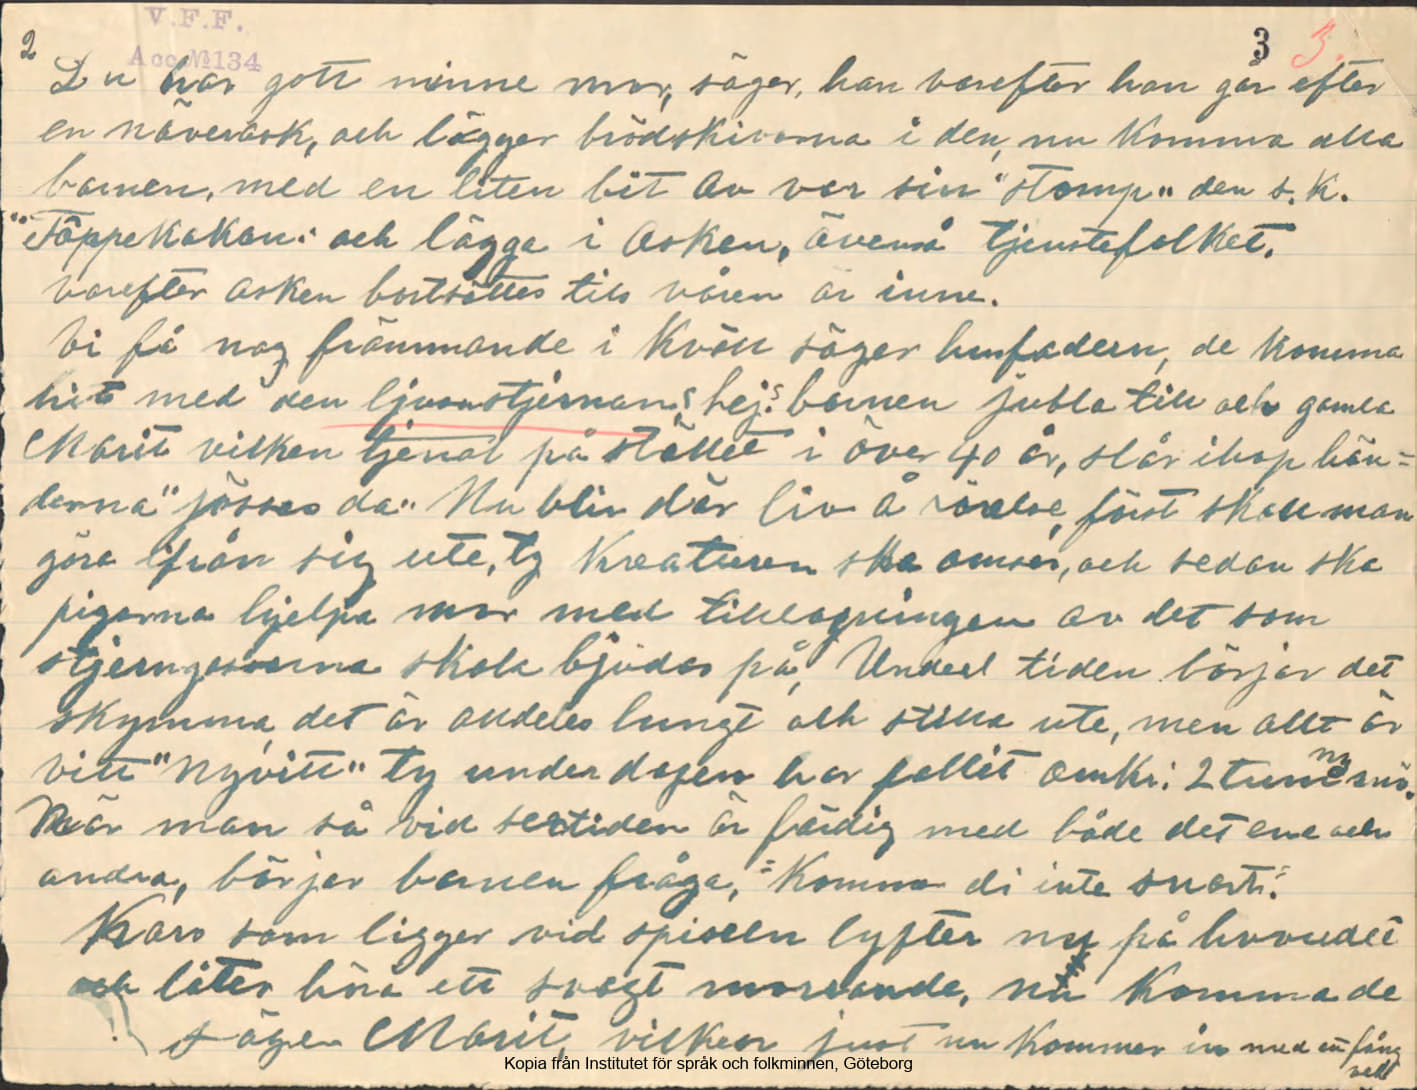 V.F.F.
Acc № 134
2
3 3.
Du har gott minne mor, säger, han varefter han går efter
en näverask, och lägger brödskivorna i den, nu komma alla
barnen, med en liten bit av var sin "stomp" den s.k.
"Täppekakan" och lägga i asken, ävenså tjenstefolket.
varefter asken bortsättes tils våren är inne.
Vi få nog främmande i kväll säger husfadern, de komma
hit med den ljusastjernan, hej! barnen jubla till och gamla
Marit vilken tjenat på stället i över 40 år, slår ihop hän=
derna "jösses da" Nu blir där liv å rörelse, först skall man
göra ifrån sig ute, ty kreaturen ska omses, och sedan ska
pigorna hjelpa mor med tillagningen av det som
stjerngossarna skola bjudas på, Under tiden börjar det
skymma, det är alldeles lungt och stilla ute, men allt är
vitt "nyvitt" ty under dagen har fallit omkr: 2 tum nysnö.
När man så vid sextiden är färdig med både det ene och
andra, börjar barnen fråga, "Komma di inte snart"
Karo som ligger vid spisen lyfter nu på huvudet
och låter höra ett svagt morrande, nu komma de
säger Marit, vilken just nu kommer in med en fång
ved
Kopia från Institutet för språk och folkminnen, Göteborg